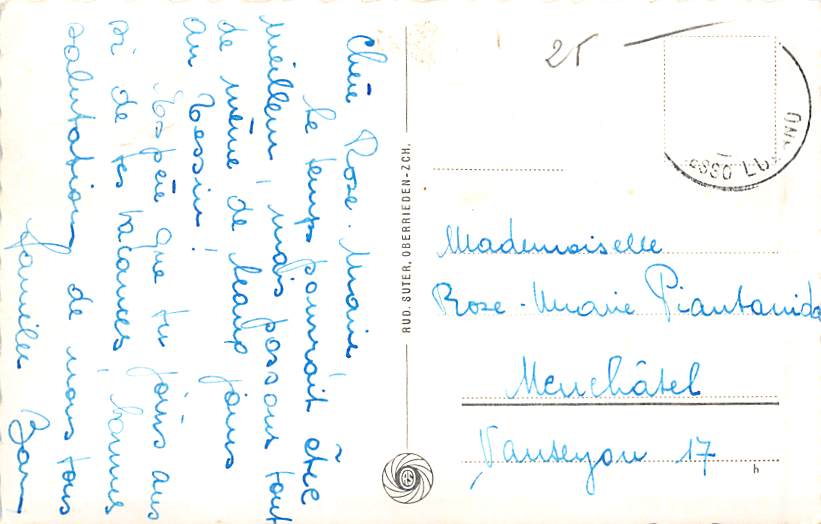 Chère Rose-Marie,
Le temps pourrait être
meilleur, mais passons tout
de même de beaux jours
au Tessin!
J'espère que tu jouis aus
si de tes vacances, bonnes
salutations de nous tous
famille
25
RUD. SUTER, OBERRIEDEN-ZCH.
Mademoiselle
Rose-Marie Piantanida
Neuchâtel
Vauseyon 17
h